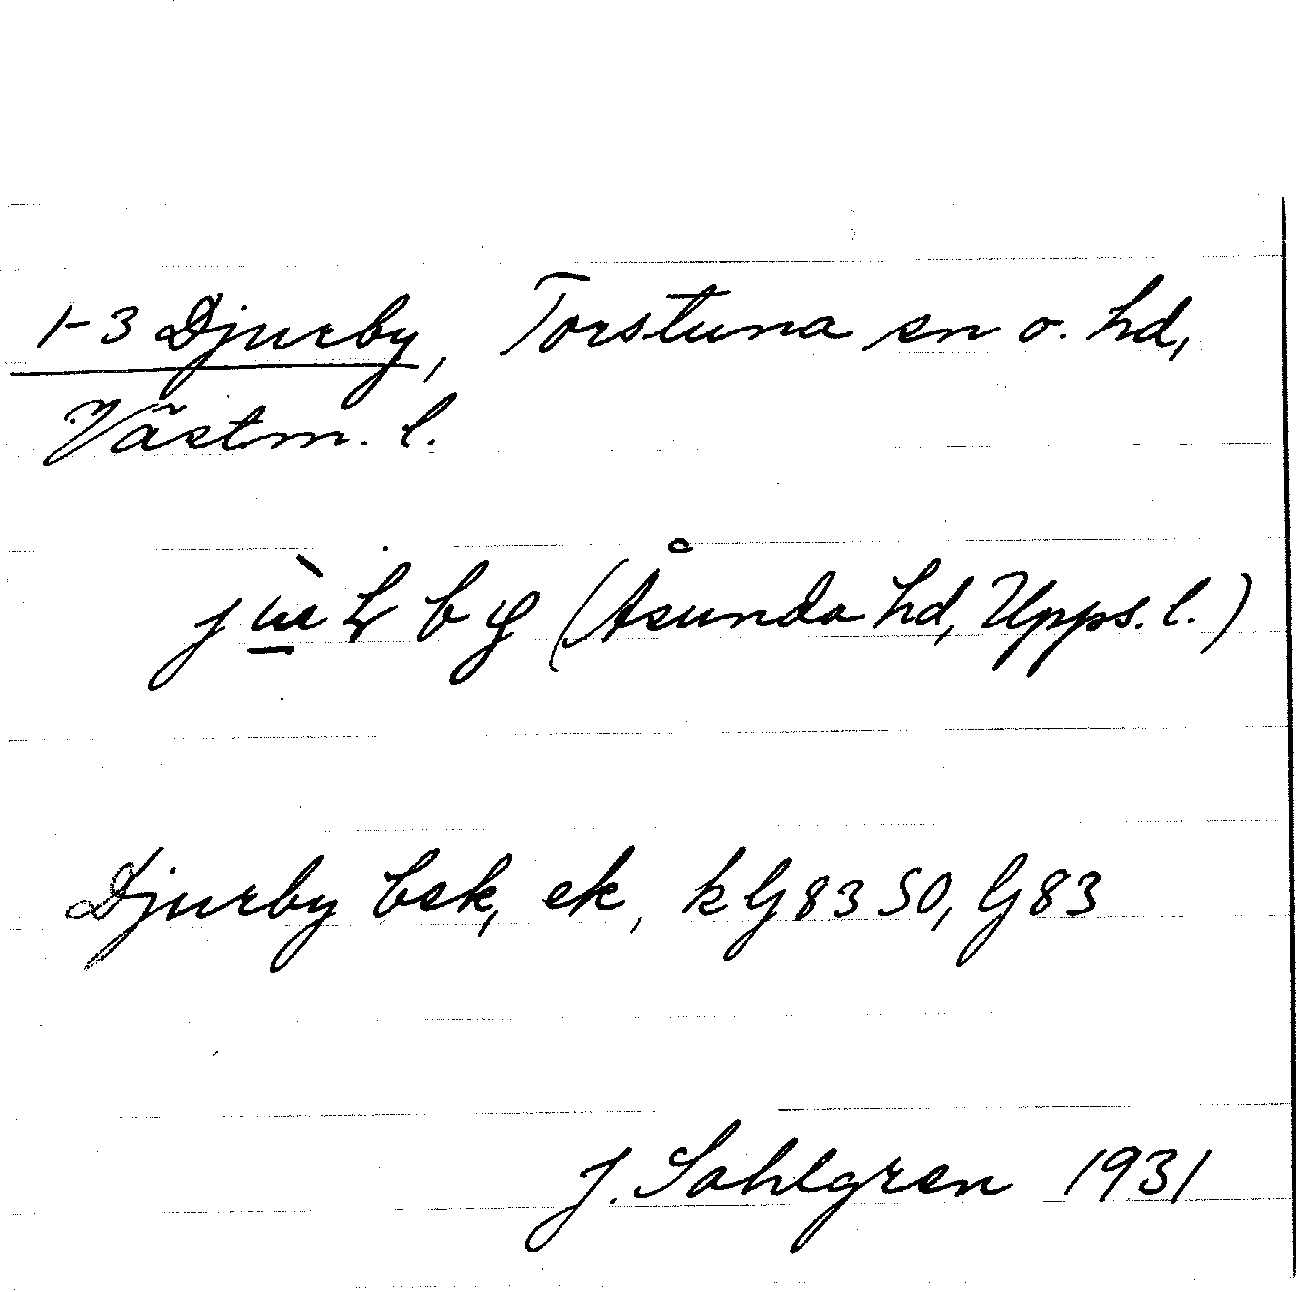 1-3 Djurby, Torstuna sn o. hd,
Västm. l.
(Åsunda hd, Upps. l.)
Djurby bsk, ek, k G 83 SO, G 83
J. Sahlgren 1931